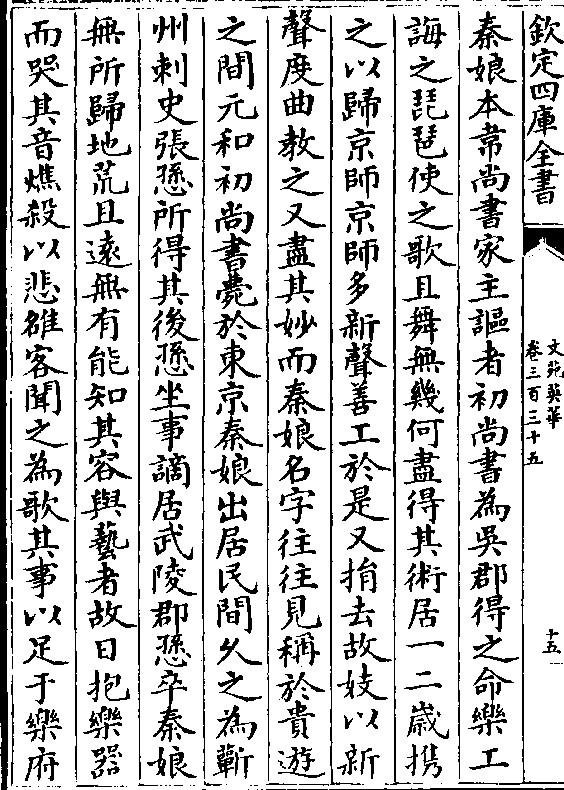 欽定四庫全書
文苑英華
卷三百三十五
十五
秦娘本常尚書家主謳者初尚書為吳郡得之命樂工
誨之琵琶使之歌且舞無幾何盡得其術居一二歲携
之以歸京師京師多新聲善工於是又捐去故妓以新
聲度曲教之又盡其妙而秦娘名字往往見稱於貴遊
之間元和初尚書薨於東京秦娘出居民間久之為蘄
州刺史張愻所得其後愻坐事謫居武陵郡愻卒秦娘
無所歸地荒且遠無有能知其容與藝者故日抱樂器
而哭其音燋殺以悲雒客聞之為歌其事以足于樂府